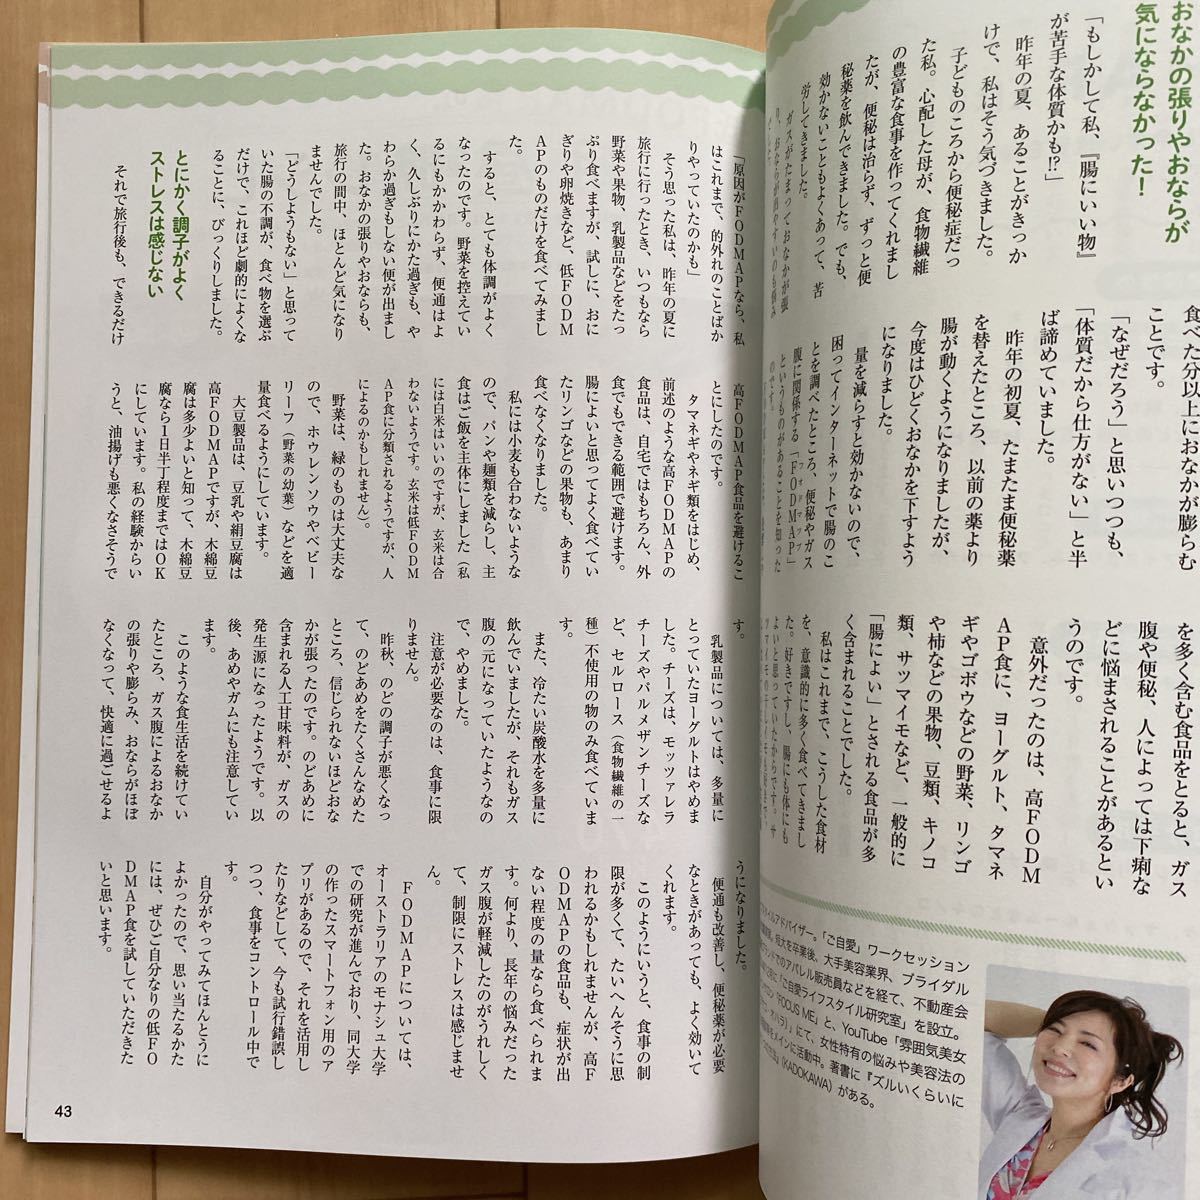 おなかの張りやおならが
気にならなかった！
「もしかして私、『腸にいい物』
が苦手な体質かも!?」
昨年の夏、あることがきっか
けで、私はそう気づきました。
子どものころから便秘症だっ
た私。心配した母が、食物繊維
の豊富な食事を作ってくれまし
たが、便秘は治らず、ずっと便
秘薬を飲んできました。でも、
効かないこともよくあって、苦
労してきました。
ガスがたまっておなかが張
り、おならが出やすいのも悩み
食べた分以上におなかが膨らむ
ことです。
「なぜだろう」と思いつつも、
「体質だから仕方がない」と半
ば諦めていました。
昨年の初夏、たまたま便秘薬
を替えたところ、以前の薬より
腸が動くようになりましたが、
今度はひどくおなかを下すよう
になりました。
量を減らすと効かないので、
困ってインターネットで腸のこ
とを調べたところ、便秘やガス
腹に関係する「FODMAP」
フォドマップ
というものがあることを知った
のです。
を多く含む食品をとると、ガス
腹や便秘、人によっては下痢な
どに悩まされることがあるとい
うのです。
意外だったのは、高FODM
AP食に、ヨーグルト、タマネ
ギやゴボウなどの野菜、リンゴ
や柿などの果物、豆類、キノコ
類、サツマイモなど、一般的に
「腸によい」とされる食品が多
く含まれることでした。
私はこれまで、こうした食材
を、意識的に多く食べてきまし
た。好きですし、腸にも体にも
よいと思っていたからです。サ
イルアドバイザー。「ご自愛」ワークセッション
短大を卒業後、大手美容業界、ブライダル
ランドでのアパレル販売員などを経て、不動産会
に「ご自愛ライフスタイル研究室」を設立。
「FOCUS ME」と、YouTube「雰囲気美女
オハラ」にて、女性特有の悩みや美容法の
をメインに活動中。著書に『ズルいくらいに
（KADOKAWA）がある。
「原因がFODMAPなら、私
はこれまで、的外れのことばか
りやっていたのかも」
そう思った私は、昨年の夏に
旅行に行ったとき、いつもなら
野菜や果物、乳製品などをたっ
ぷり食べますが、試しに、おに
ぎりや卵焼きなど、低FODM
APのものだけを食べてみまし
た。
すると、とても体調がよく
なったのです。野菜を控えてい
るにもかかわらず、便通はよ
く、久しぶりにかた過ぎも、や
わらか過ぎもしない便が出まし
た。おなかの張りやおならも、
旅行の間中、ほとんど気になり
ませんでした。
「どうしようもない」と思って
いた腸の不調が、食べ物を選ぶ
だけで、これほど劇的によくな
ることに、びっくりしました。
とにかく調子がよく
ストレスは感じない
それで旅行後も、できるだけ
高FODMAP食品を避けるこ
とにしたのです。
タマネギやネギ類をはじめ、
前述のような高FODMAPの
食品は、自宅ではもちろん、外
食でもできる範囲で避けます。
腸によいと思ってよく食べてい
たリンゴなどの果物も、あまり
食べなくなりました。
私には小麦も合わないような
ので、パンや麺類を減らし、主
食はご飯を主体にしました（私
には白米はいいのですが、玄米は合
わないようです。玄米は低FODM
AP食に分類されるようですが、人
によるのかもしれません）。
野菜は、緑のものは大丈夫な
ので、ホウレンソウやベビー
リーフ（野菜の幼葉）などを適
量食べるようにしています。
大豆製品は、豆乳や絹豆腐は
高FODMAPですが、木綿豆
腐は多少よいと知って、木綿豆
腐なら1日半丁程度まではOK
にしています。私の経験からい
うと、油揚げも悪くなさそうで
す。
乳製品については、多量に
とっていたヨーグルトはやめま
した。チーズは、モッツァレラ
チーズやパルメザンチーズな
ど、セルロース（食物繊維の一
種）不使用の物のみ食べていま
す。
また、冷たい炭酸水を多量に
飲んでいましたが、それもガス
腹の元になっていたようなの
で、やめました。
注意が必要なのは、食事に限
りません。
昨秋、のどの調子が悪くなっ
て、のどあめをたくさんなめた
ところ、信じられないほどおな
かが張ったのです。のどあめに
含まれる人工甘味料が、ガスの
発生源になったようです。以
後、あめやガムにも注意してい
ます。
このような食生活を続けてい
たところ、ガス腹によるおなか
の張りや膨らみ、おならがほぼ
なくなって、快適に過ごせるよ
うになりました。
便通も改善し、便秘薬が必要
なときがあっても、よく効いて
くれます。
このようにいうと、食事の制
限が多くて、たいへんそうに思
われるかもしれませんが、高F
ODMAPの食品も、症状が出
ない程度の量なら食べられま
す。何より、長年の悩みだった
ガス腹が軽減したのがうれしく
て、制限にストレスは感じませ
ん。
FODMAPについては、
オーストラリアのモナシュ大学
での研究が進んでおり、同大学
の作ったスマートフォン用のア
プリがあるので、それを活用し
たりなどして、今も試行錯誤し
つつ、食事をコントロール中で
す。
自分がやってみてほんとうに
よかったので、思い当たるかた
には、ぜひご自分なりの低FO
DMAP食を試していただきた
いと思います。
43